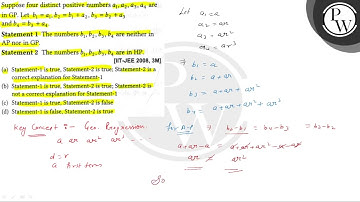 Suppose four distinct positive numbers a₁, a₂, a₃, a₄ are
in GP. Let b₁ = a₁, b₂ = b₁ + a₂, b₃ = b₂ + a₃
and b₄ = b₃ + a₄.
Statement 1 The numbers b₁, b₂, b₃, b₄ are neither in
AP nor in GP.
Statement 2 The numbers b₁, b₂, b₃, b₄ are in HP.
[IIT-JEE 2008, 3M]
(a) Statement-1 is true, Statement-2 is true; Statement-2 is a
correct explanation for Statement-1
(b) Statement-1 is true, Statement-2 is true; Statement-2 is
not a correct explanation for Statement-1
(c) Statement-1 is true, Statement-2 is false
(d) Statement-1 is false, Statement-2 is true
Key Concept :- Geo. Progression.
a ar ar² ar³ - - -
d = r
a first term
Let a₁ = a
a₂ = ar
a₃ = ar²
a₄ = ar³
⇒ b₁ = a
b₂ = a + ar
b₃ = a + ar + ar²
b₄ = a + ar + ar² + ar³
for A.P ⇒ b₂ - b₁ = b₄ - b₃ = b₃ - b₂
a + ar - a = a + ar + ar² - a - ar
ar ar²
So